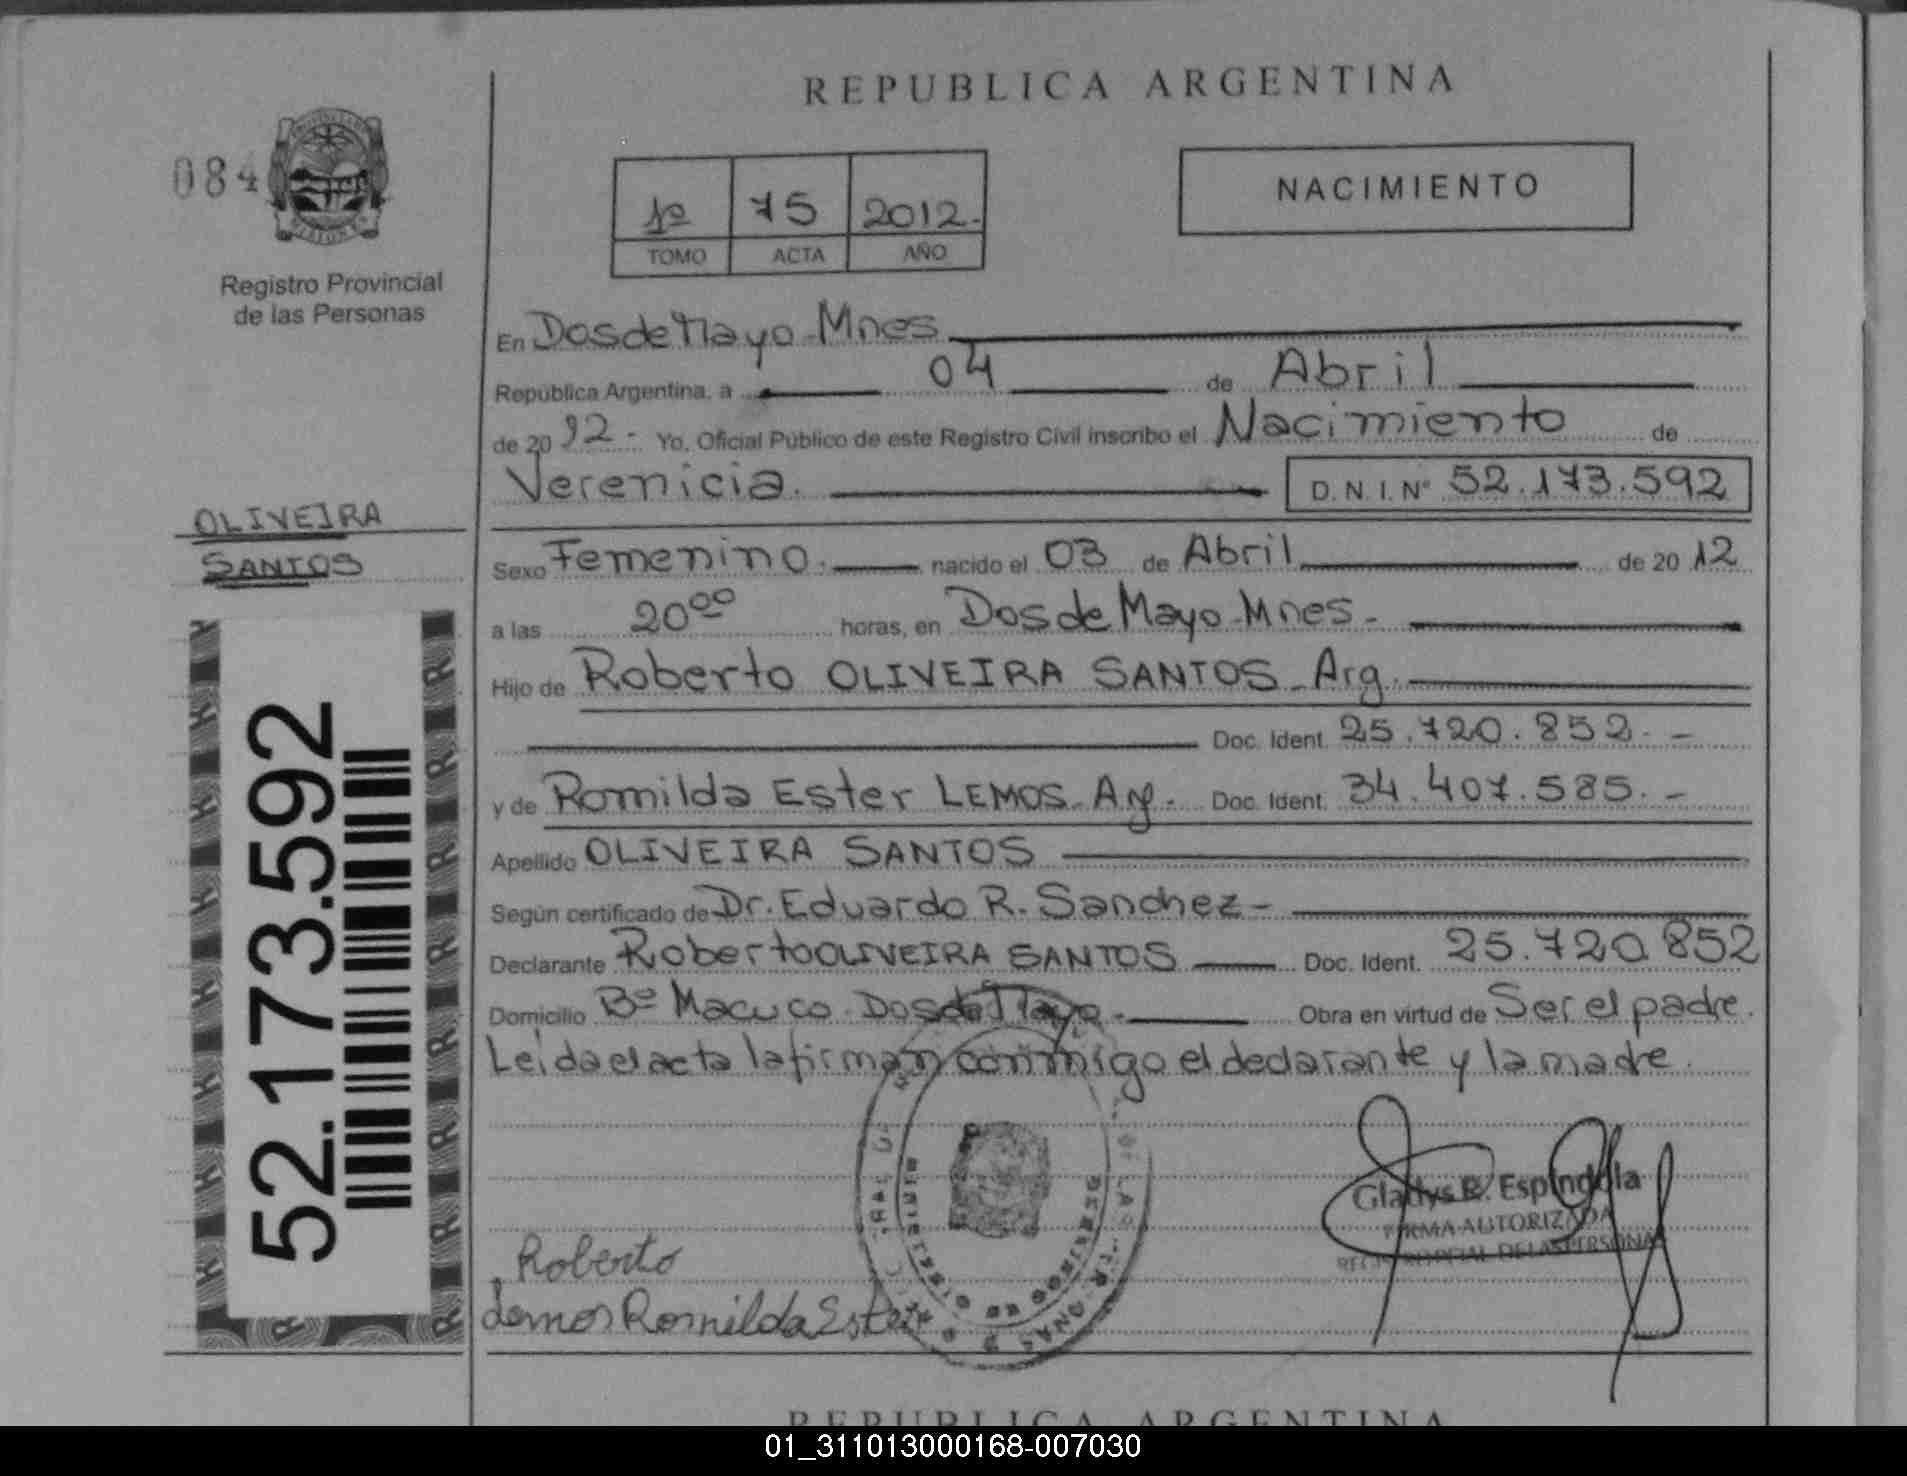 REPUBLICA ARGENTINA
084
Registro Provincial
de las Personas
1º 75 2012.
TOMO ACTA AÑO
NACIMIENTO
En Dos de Mayo - Mnes
República Argentina, a 04 de Abril
de 20 12 - Yo, Oficial Público de este Registro Civil inscribo el Nacimiento de
Verenicia. D.N.I. Nº 52.173.592
OLIVEIRA
SANTOS
Sexo Femenino. nacido el 03 de Abril de 20 12
a las 20⁰⁰ horas, en Dos de Mayo - Mnes -
Hijo de Roberto OLIVEIRA SANTOS - Arg.
Doc. Ident. 25.720.852. -
y de Romilda Ester LEMOS - Arg. Doc. Ident. 34.407.585. -
Apellido OLIVEIRA SANTOS
Según certificado de Dr. Eduardo R. Sanchez -
Declarante Roberto OLIVEIRA SANTOS Doc. Ident. 25.720.852
Domicilio Bº Macuco - Dos de Mayo - Obra en virtud de Ser el padre.
Leida el acta la firman conmigo el declarante y la madre.
52.173.592
Gladys R. Espindola
FIRMA AUTORIZADA
DE LAS PERSONAS
Roberto
Lemos Romilda Ester
REPUBLICA ARGENTINA
01_311013000168-007030